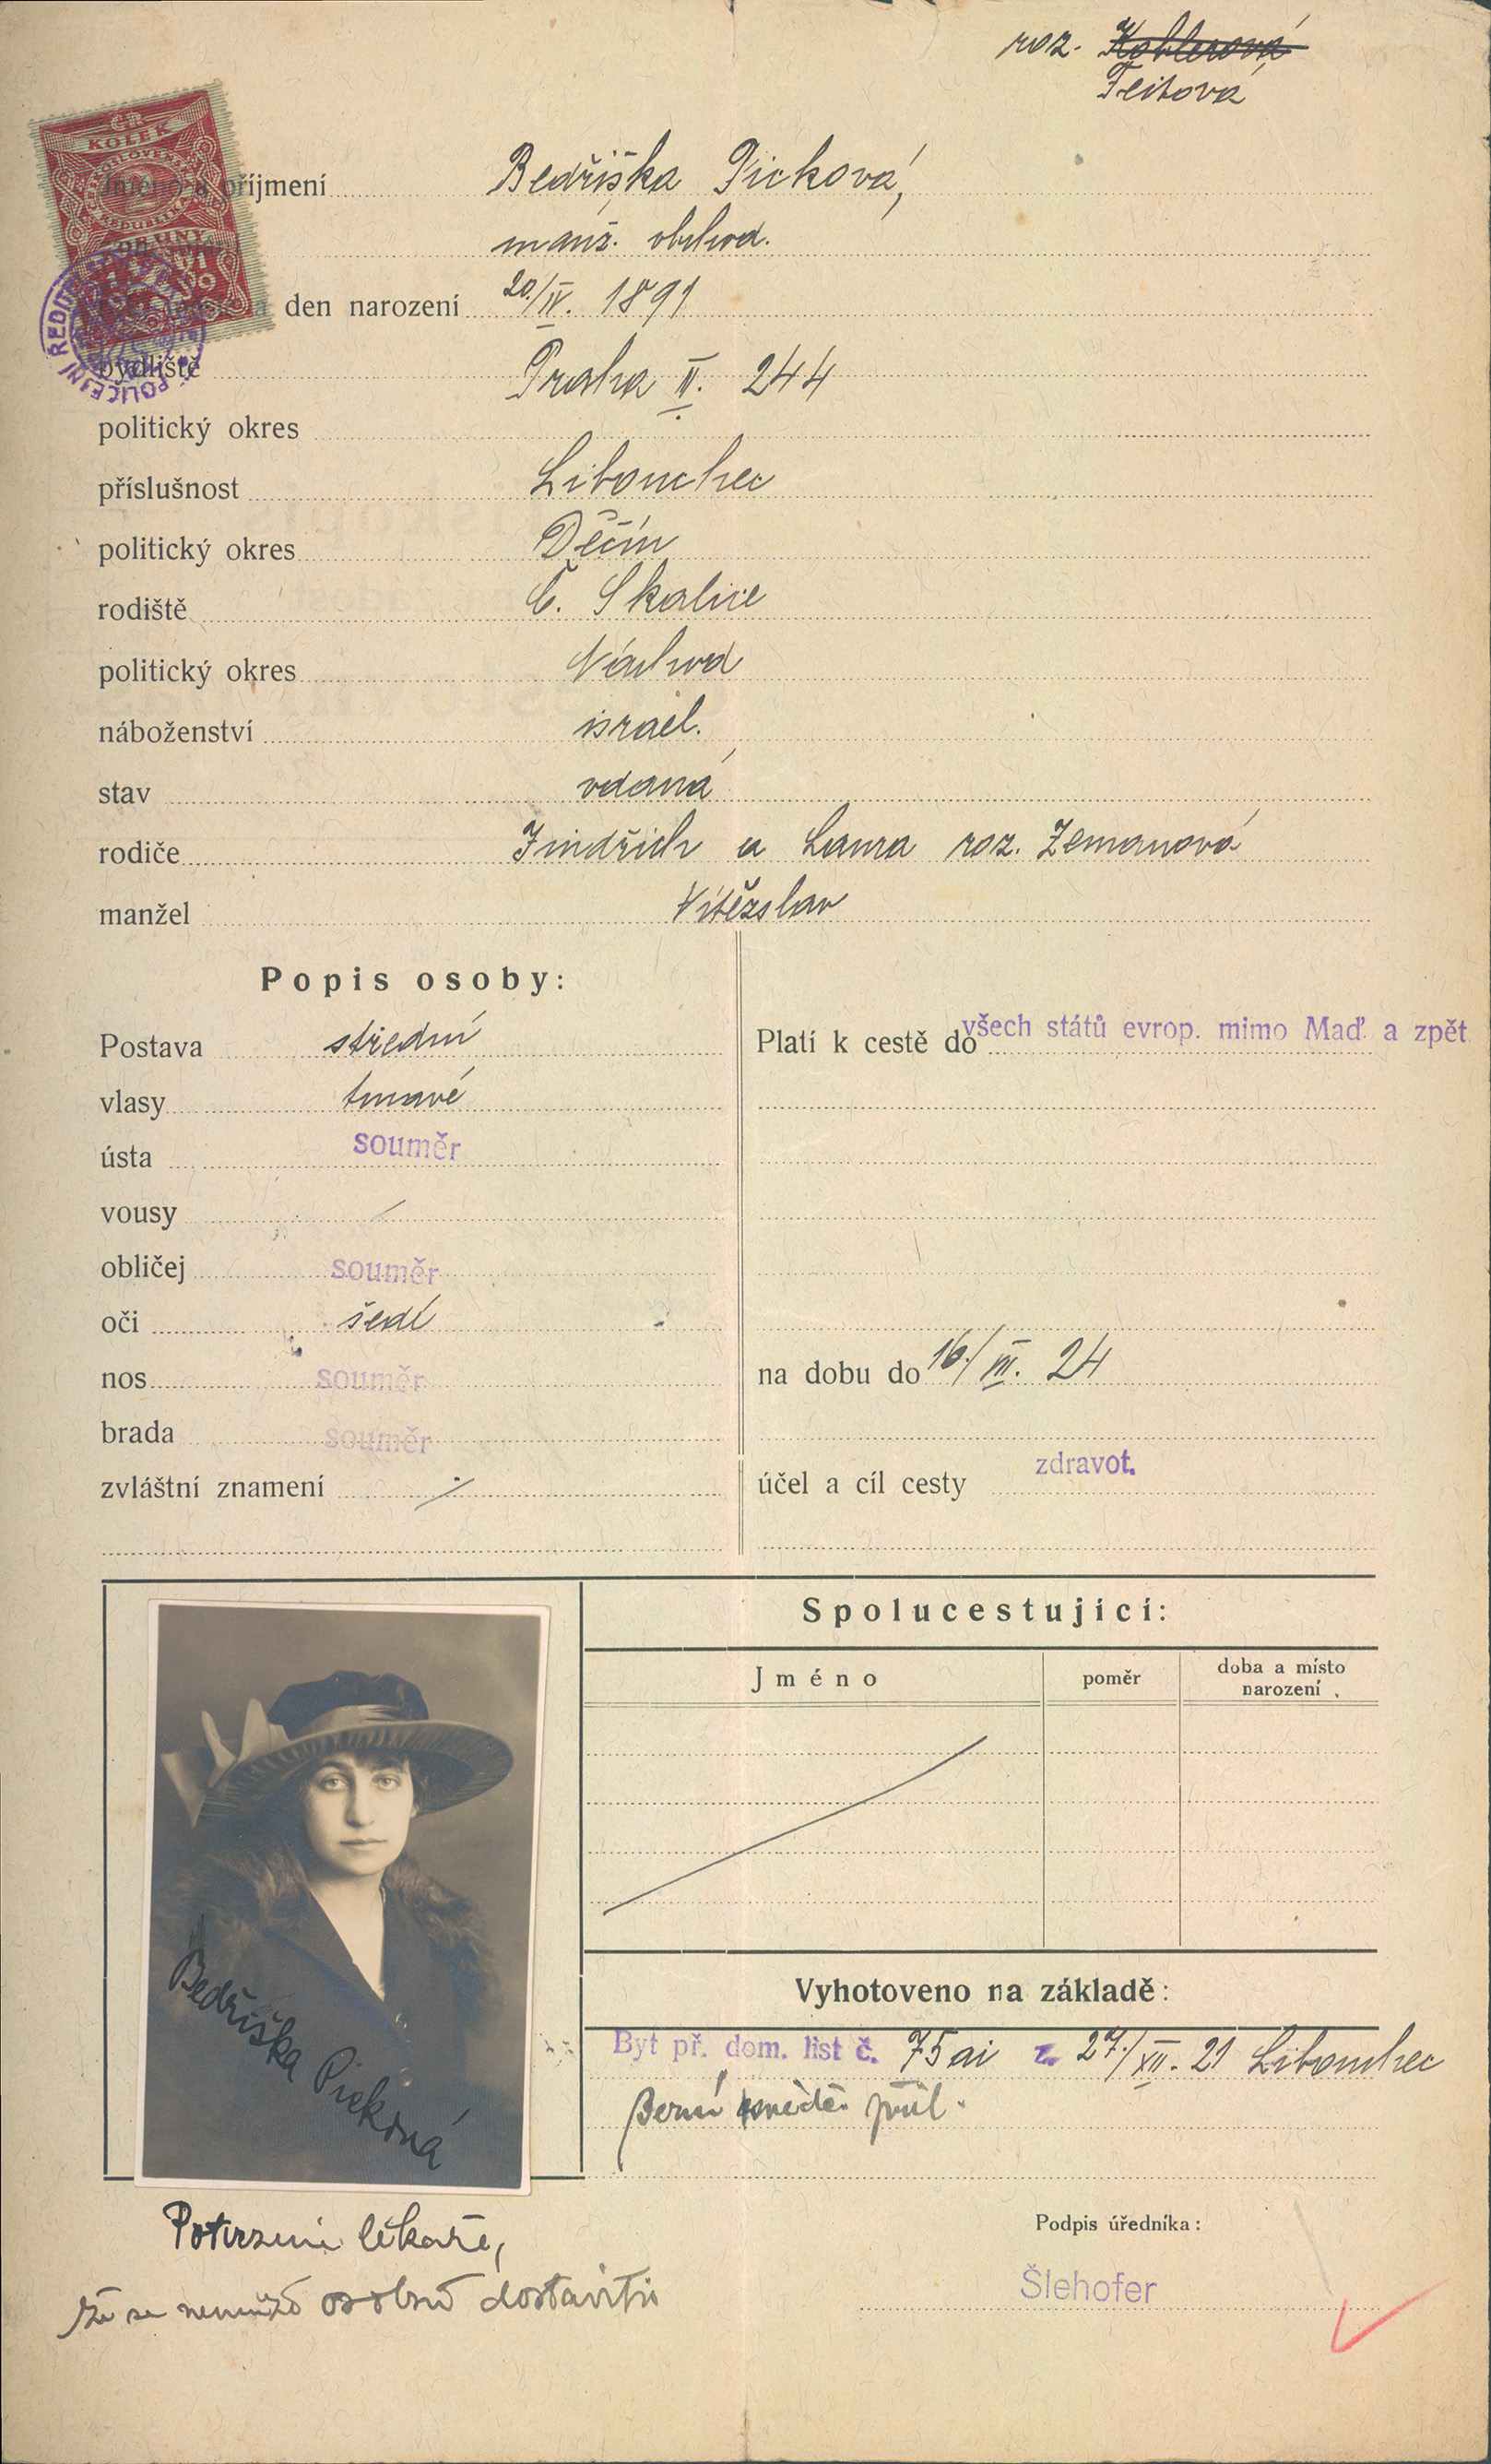 roz. Kohlerová
Feitová
ČR
KOLEK
příjmení Bedřiška Picková,
manž. obchod.
den narození 20./IV. 1891
bydliště Praha II. 244
politický okres
příslušnost Libouchec
politický okres Děčín
rodiště Č. Skalice
politický okres Náchod
náboženství israel.
stav vdaná
rodiče Jindřich a Laura roz. Zemanová
manžel Vítězslav
Popis osoby:
Postava střední
vlasy tmavé
ústa souměr
vousy /
obličej souměr
oči šedé
nos souměr
brada souměr
zvláštní znamení ./.
Platí k cestě do všech států evrop. mimo Maď. a zpět
na dobu do 16./III. 24
účel a cíl cesty zdravot.
Spolucestující:
Jméno poměr doba a místo
narození
Bedřiška Picková
Vyhotoveno na základě:
Byt př. dom. list č. 75 ai z. 27./XII. 21 Libouchec
Berní příl.
Potvrzení lékaře,
že se nemůže osobně dostaviti
Podpis úředníka:
Šlehofer